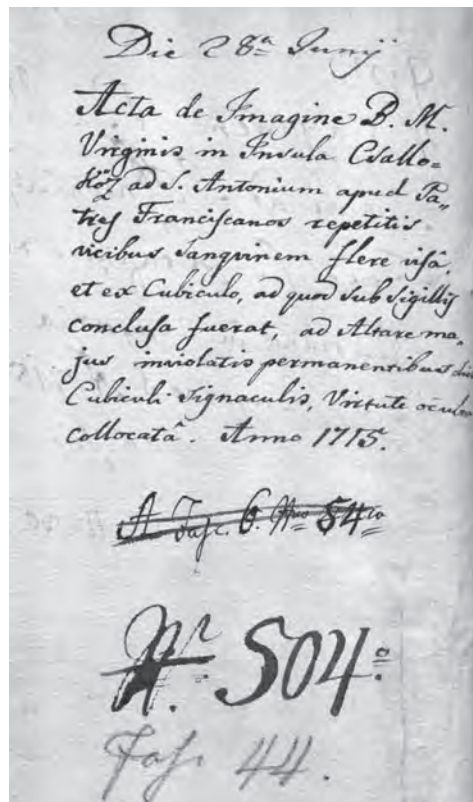 Die 28ª Junij
Acta de Imagine B. M.
Virginis in Insula Csallo=
köz ad S. Antonium apud Pa„
tres Franciscanos repetitis
vicibus Sanguinem flere visâ,
et ex Cubiculo, ad quod sub Sigillis
conclusa fuerat, ad Altare ma„
jus inviolatis permanentibus
Cubiculi Signaculis, Virtute
collocatâ. Anno 1715.
A Fasc. 6. Nro 54to
Nr. 504º
Fasc 44.